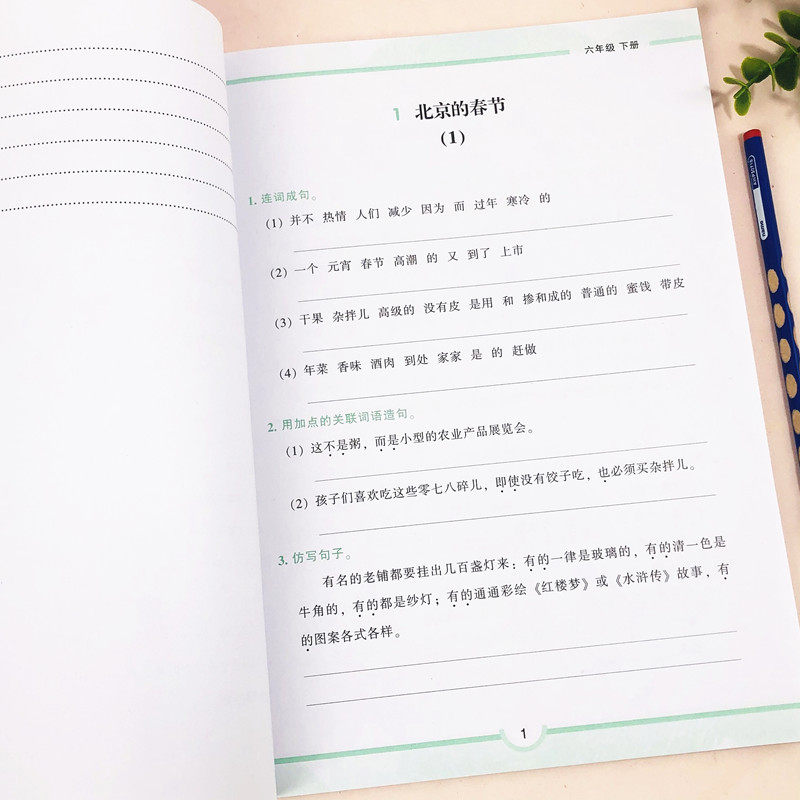 六年级 下册
1 北京的春节
(1)
1. 连词成句。
(1) 并不 热情 人们 减少 因为 而 过年 寒冷 的
(2) 一个 元宵 春节 高潮 的 又 到了 上市
(3) 干果 杂拌儿 高级的 没有皮 是用 和 掺和成的 普通的 蜜饯 带皮
(4) 年菜 香味 酒肉 到处 家家 是 的 赶做
2. 用加点的关联词语造句。
(1) 这不是粥，而是小型的农业产品展览会。
(2) 孩子们喜欢吃这些零七八碎儿，即使没有饺子吃，也必须买杂拌儿。
3. 仿写句子。
有名的老铺都要挂出几百盏灯来：有的一律是玻璃的，有的清一色是
牛角的，有的都是纱灯；有的通通彩绘《红楼梦》或《水浒传》故事，有
的图案各式各样。
1